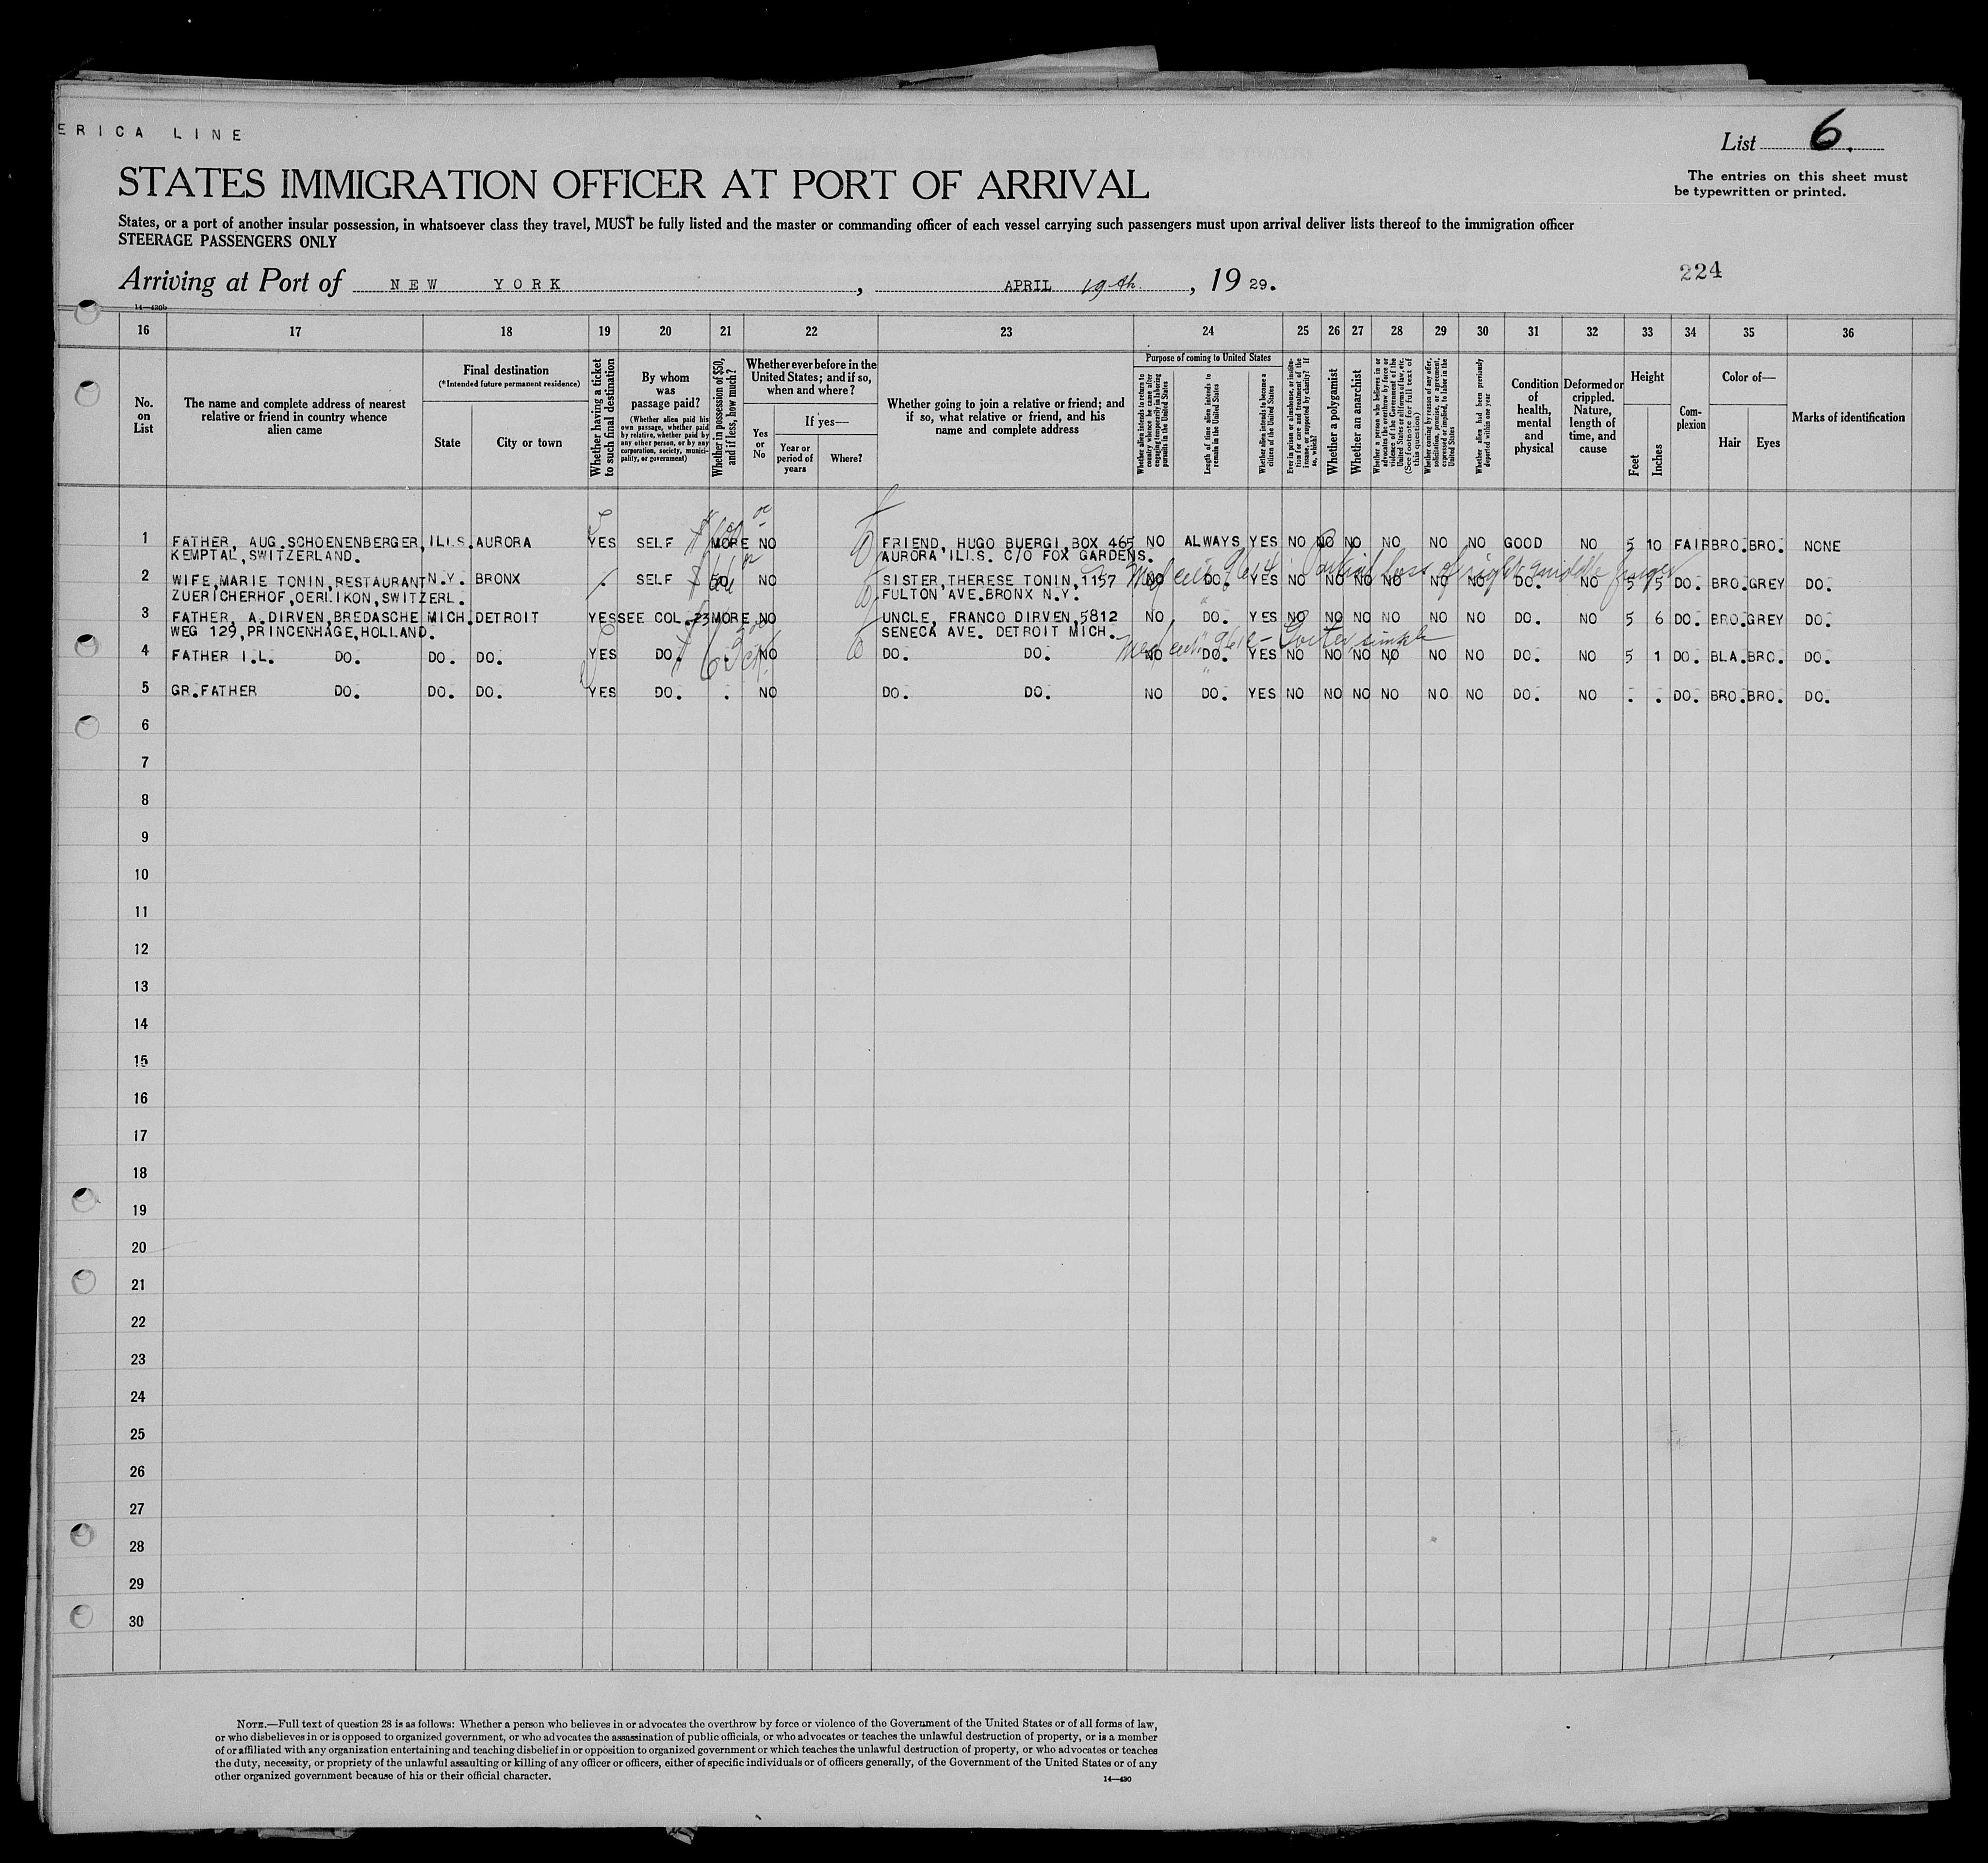 ERICA LINE
List 6.
STATES IMMIGRATION OFFICER AT PORT OF ARRIVAL
The entries on this sheet must
be typewritten or printed.
States, or a port of another insular possession, in whatsoever class they travel, MUST be fully listed and the master or commanding officer of each vessel carrying such passengers must upon arrival deliver lists thereof to the immigration officer
STEERAGE PASSENGERS ONLY
Arriving at Port of NEW YORK, APRIL 19th, 1929.
224
14—430b
16 17 18 19 20 21 22 23 24 25 26 27 28 29 30 31 32 33 34 35 36
No. on List
The name and complete address of nearest relative or friend in country whence alien came
Final destination
(*Intended future permanent residence)
State
City or town
Whether having a ticket to such final destination
By whom was passage paid?
(Whether alien paid his own passage, whether paid by relative, whether paid by any other person, or by any corporation, society, municipality, or government)
Whether in possession of $50, and if less, how much?
Whether ever before in the United States; and if so, when and where?
Yes or No
If yes—
Year or period of years
Where?
Whether going to join a relative or friend; and if so, what relative or friend, and his name and complete address
Purpose of coming to United States
Whether alien intends to return to country whence he came after engaging temporarily in laboring pursuits in the United States
Length of time alien intends to remain in the United States
Whether alien intends to become a citizen of the United States
Ever in prison or almshouse, or institution for care and treatment of the insane, or supported by charity? If so, which?
Whether a polygamist
Whether an anarchist
Whether a person who believes in or advocates the overthrow by force or violence of the Government of the United States or all forms of law, etc. (See footnote for full text of this question)
Whether coming by reason of any offer, solicitation, promise, or agreement, expressed or implied, to labor in the United States
Whether alien had been previously deported within one year
Condition of health, mental and physical
Deformed or crippled. Nature, length of time, and cause
Height
Feet
Inches
Complexion
Color of—
Hair
Eyes
Marks of identification
1 FATHER, AUG.SCHOENENBERGER, ILLS. AURORA YES SELF MORE NO FRIEND, HUGO BUERGI, BOX 465 NO ALWAYS YES NO NO NO NO NO NO GOOD NO 5 10 FAIR BRO. BRO. NONE
KEMPTAL, SWITZERLAND. AURORA ILLS. C/O FOX GARDENS.
Partial loss of right middle finger
2 WIFE, MARIE TONIN, RESTAURANT N.Y. BRONX SELF 50 NO SISTER, THERESE TONIN, 1157 NO DO. YES NO NO NO NO NO NO DO. NO 5 5 DO. BRO. GREY DO.
ZUERICHERHOF, OERLIKON, SWITZERL. FULTON AVE. BRONX N.Y.
3 FATHER, A. DIRVEN, BREDASCHE MICH. DETROIT YES SEE COL. 23 MORE NO UNCLE, FRANCO DIRVEN, 5812 NO DO. YES NO NO NO NO NO NO DO. NO 5 6 DO. BRO. GREY DO.
WEG 129, PRINCENHAGE, HOLLAND. SENECA AVE. DETROIT MICH.
Goiter simple
4 FATHER I.L. DO. DO. DO. YES DO. NO DO. DO. NO DO. YES NO NO NO NO NO NO DO. NO 5 1 DO. BLA. BRO. DO.
5 GR.FATHER DO. DO. DO. YES DO. . NO DO. DO. NO DO. YES NO NO NO NO NO NO DO. NO . . DO. BRO. BRO. DO.
6
7
8
9
10
11
12
13
14
15
16
17
18
19
20
21
22
23
24
25
26
27
28
29
30
NOTE.—Full text of question 28 is as follows: Whether a person who believes in or advocates the overthrow by force or violence of the Government of the United States or of all forms of law,
or who disbelieves in or is opposed to organized government, or who advocates the assassination of public officials, or who advocates or teaches the unlawful destruction of property, or is a member
of or affiliated with any organization entertaining and teaching disbelief in or opposition to organized government or which teaches the unlawful destruction of property, or who advocates or teaches
the duty, necessity, or propriety of the unlawful assaulting or killing of any officer or officers, either of specific individuals or of officers generally, of the Government of the United States or of any
other organized government because of his or their official character.
14—430